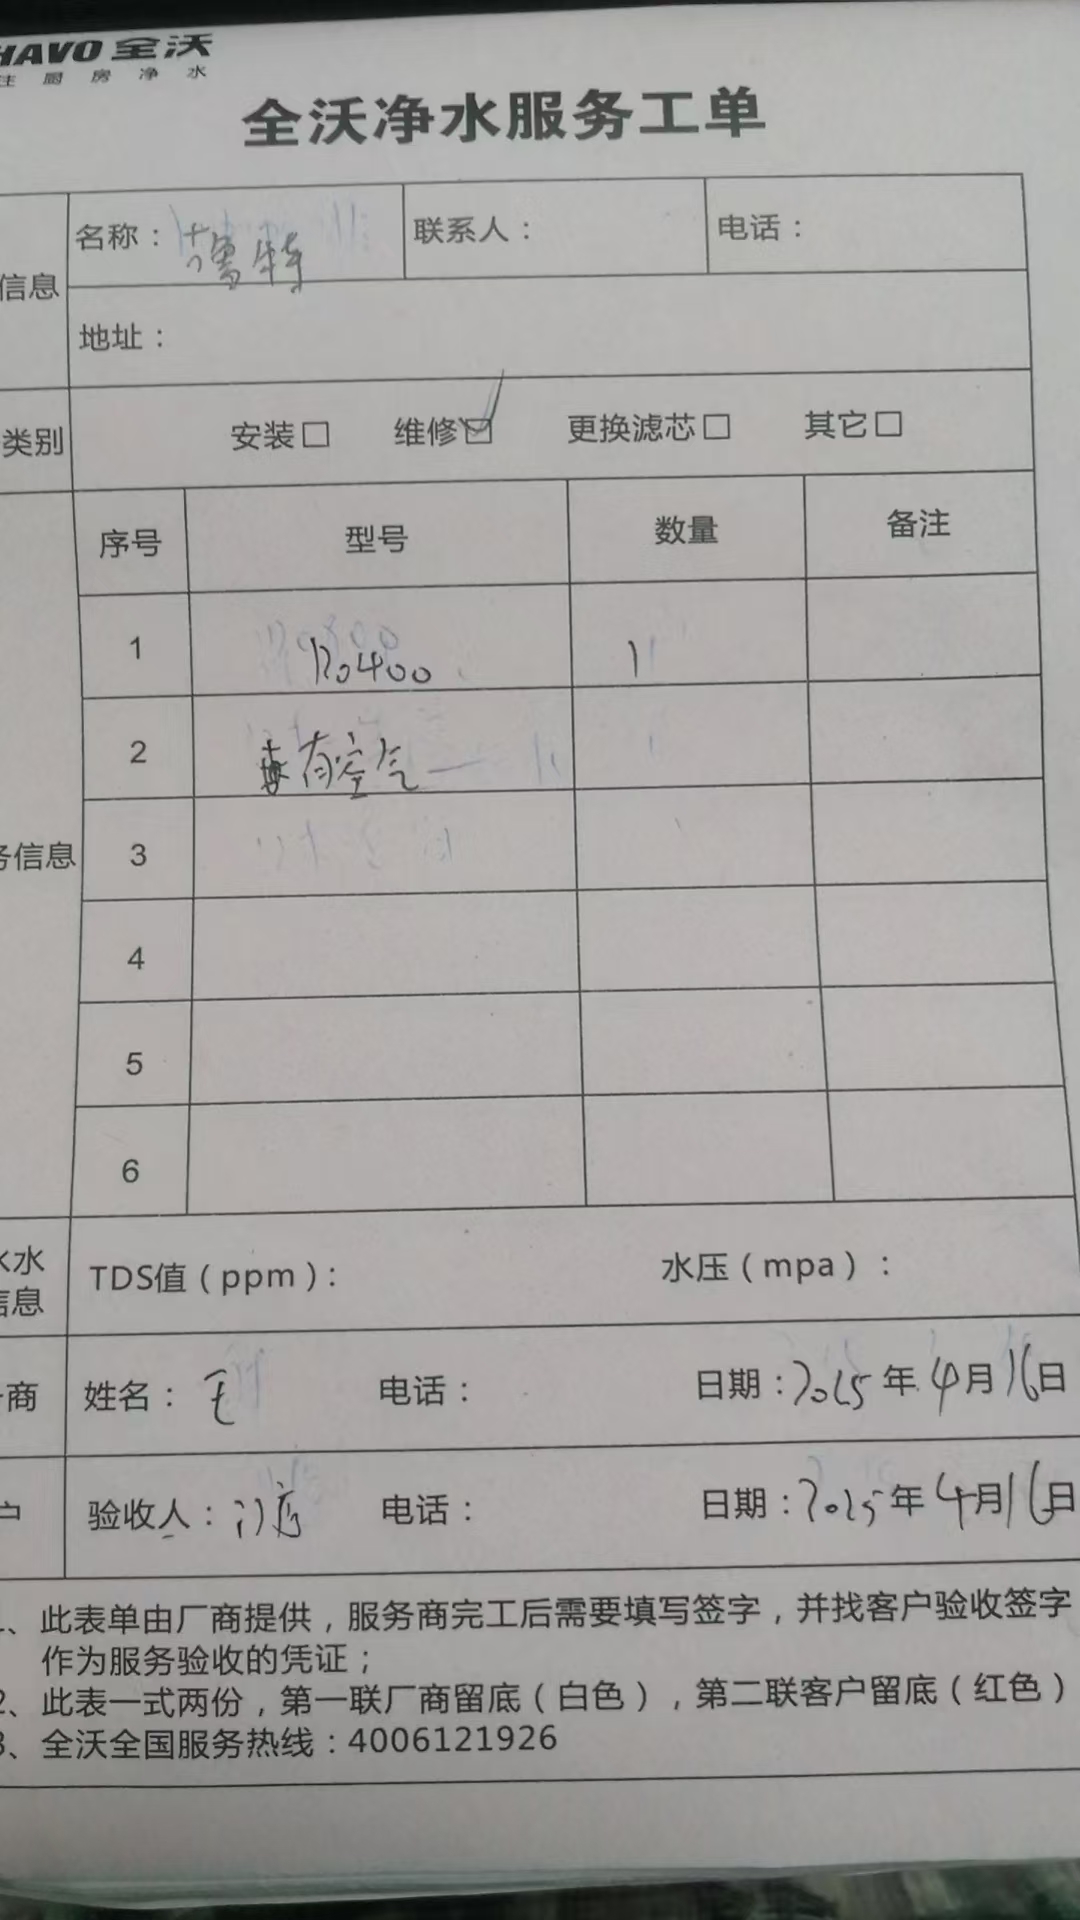 HAVO 全沃
注厨房净水
全沃净水服务工单
信息
名称：
联系人：
电话：
地址：
类别
安装□ 维修☑ 更换滤芯□ 其它□
序号 型号 数量 备注
1 R0400 1
2 有空气
务信息
3
4
5
6
水水
信息
TDS值（ppm）： 水压（mpa）：
商 姓名：毛 电话： 日期：2025年4月16日
户 验收人：门店 电话： 日期：2025年4月16日
1、此表单由厂商提供，服务商完工后需要填写签字，并找客户验收签字
作为服务验收的凭证；
2、此表一式两份，第一联厂商留底（白色），第二联客户留底（红色）
3、全沃全国服务热线：4006121926